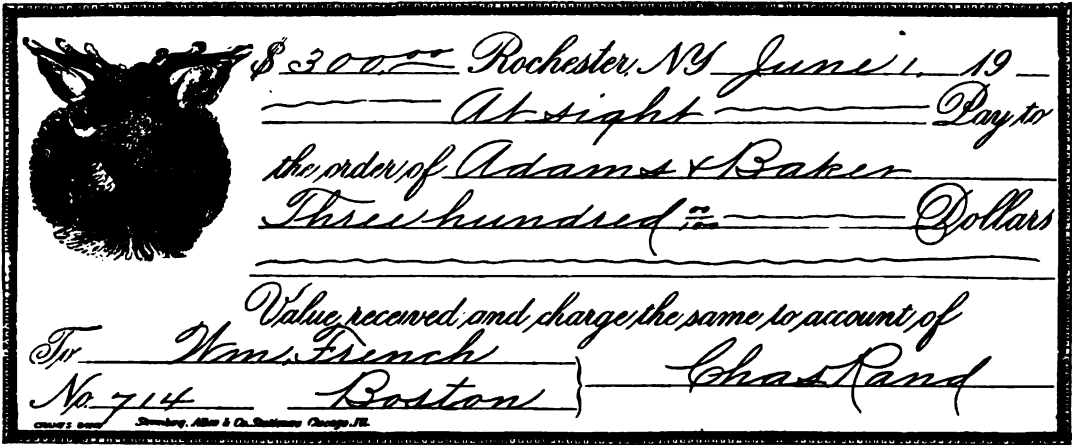 $ 300.00 Rochester, NY June 1, 19
At sight Pay to
the order of Adams & Baker
Three hundred 00/100 Dollars
Value received and charge the same to account of
To Wm. French
Chas Rand
No. 714 Boston
Allen & Co. Stationers Chicago, Ill.